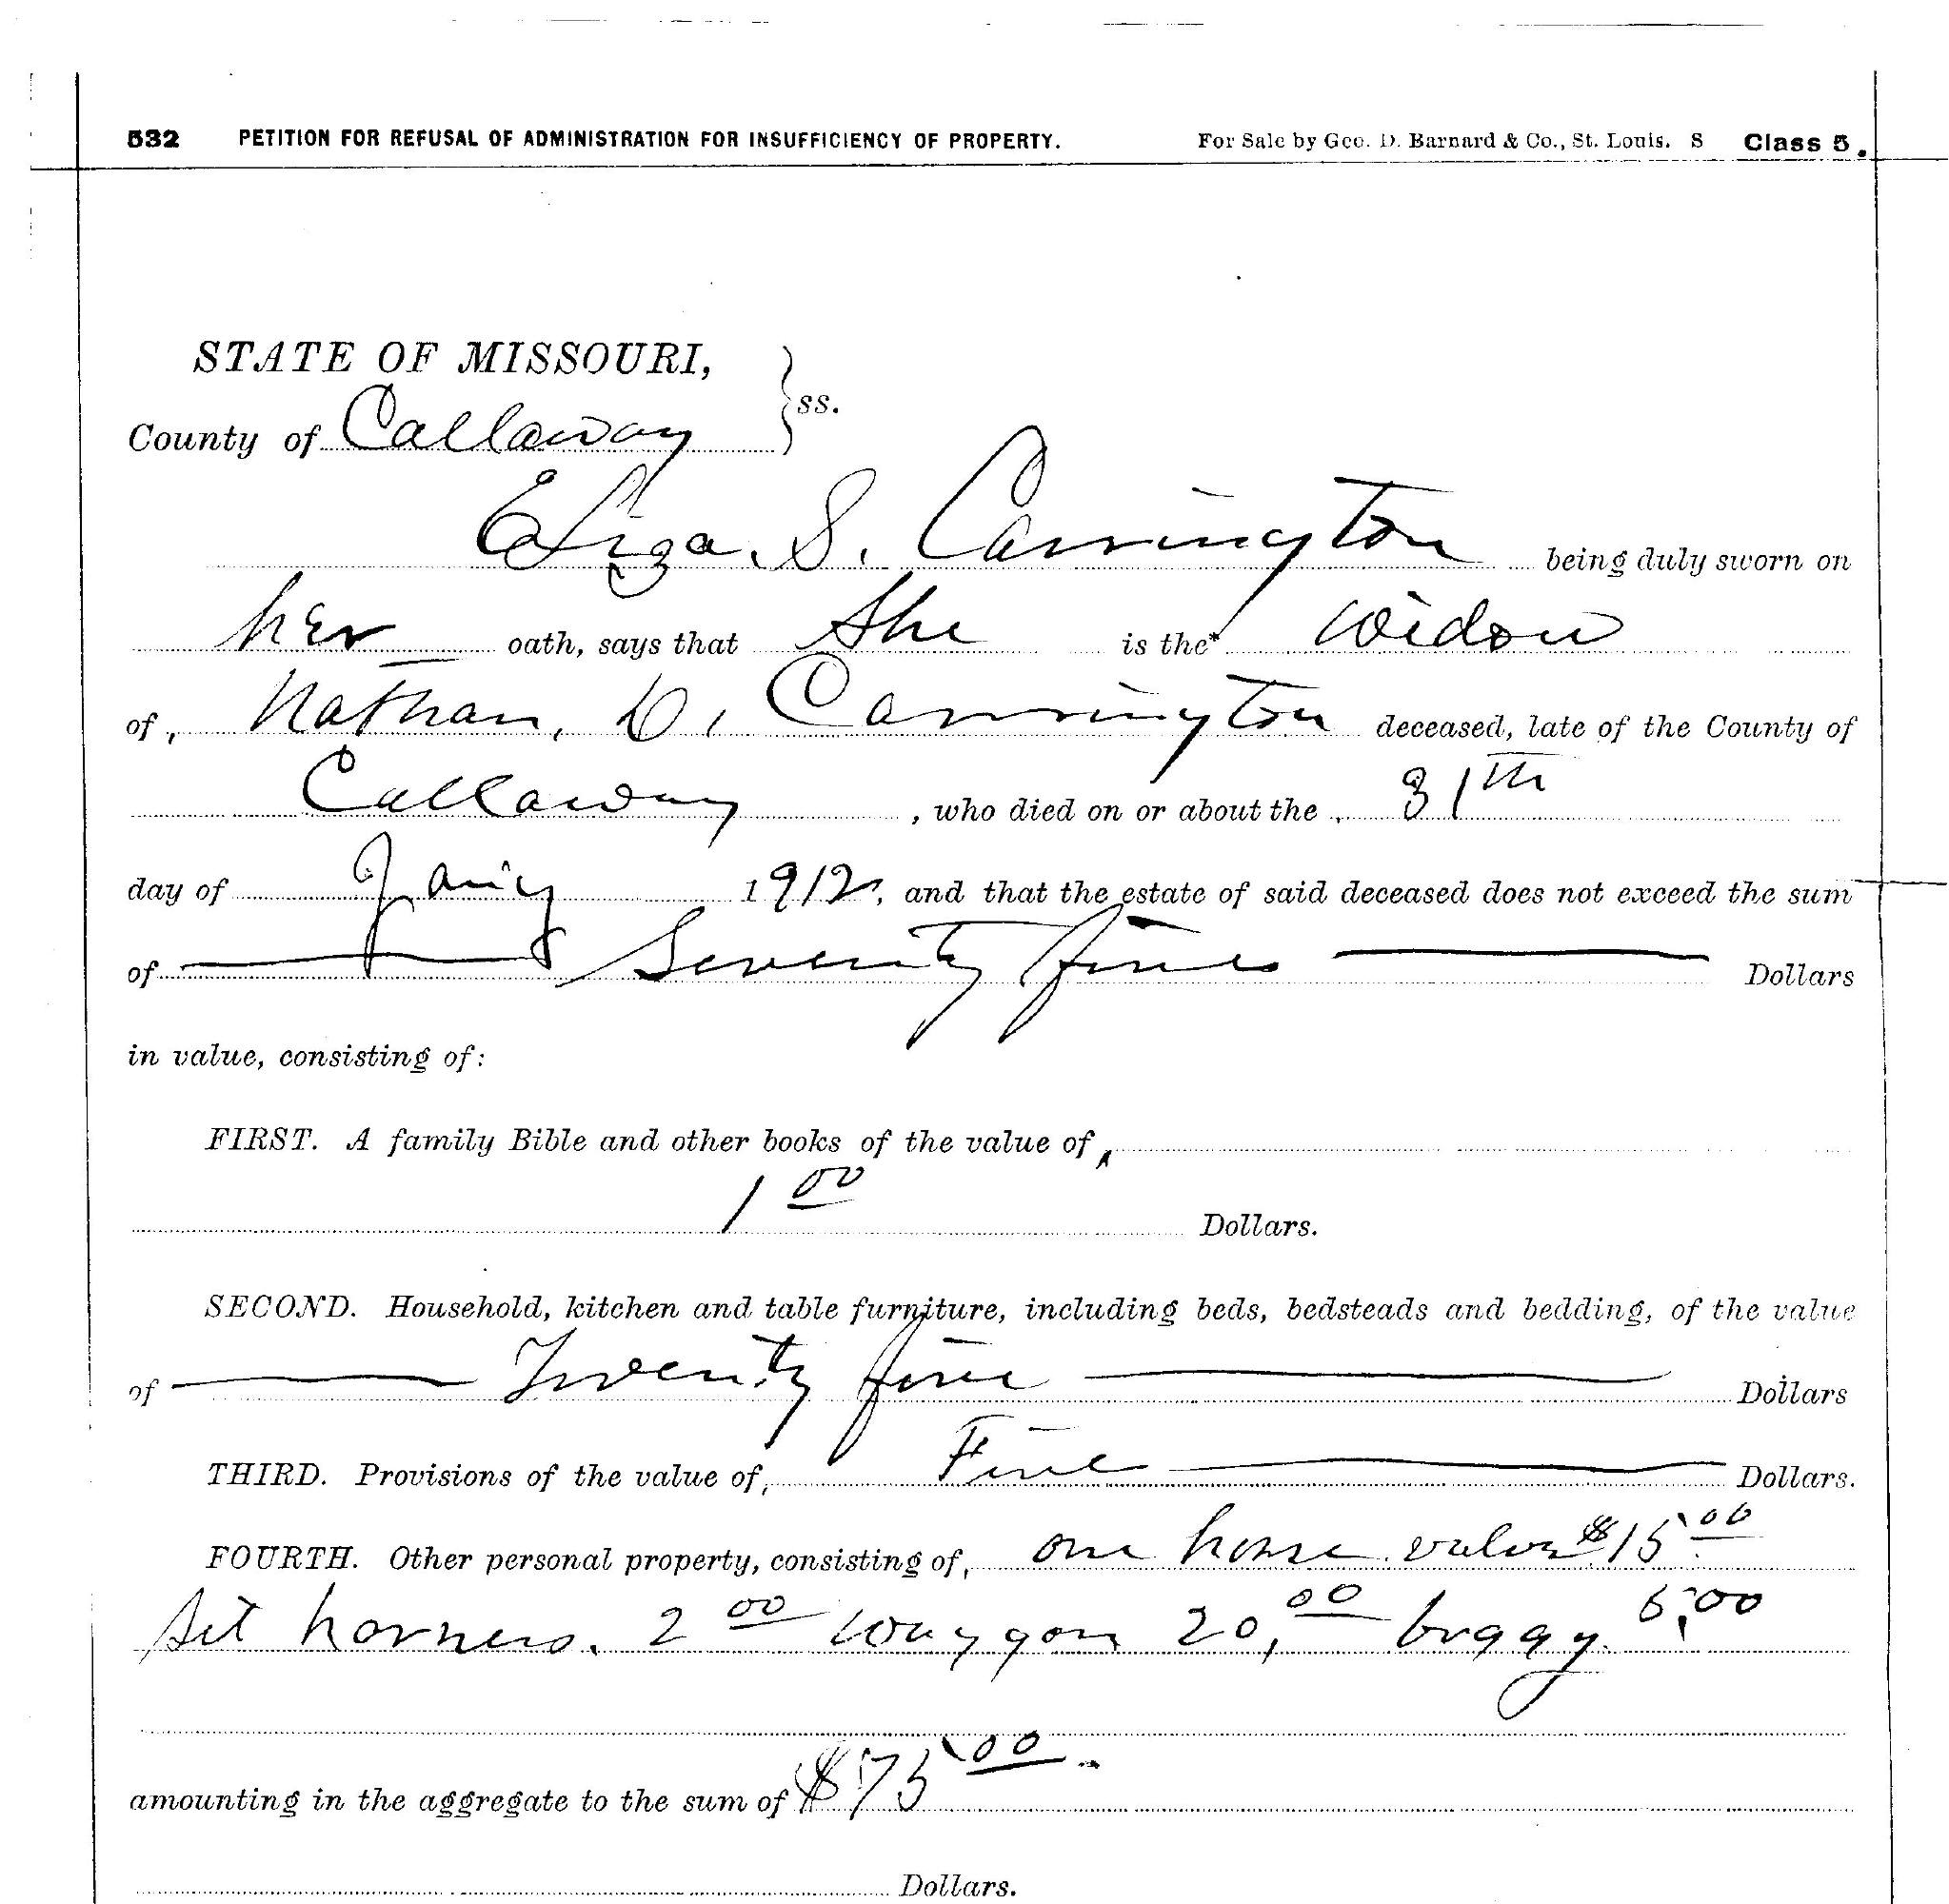 532 PETITION FOR REFUSAL OF ADMINISTRATION FOR INSUFFICIENCY OF PROPERTY. For Sale by Geo. D. Barnard & Co., St. Louis. S Class 5.
STATE OF MISSOURI,
County of Callaway } ss.
Eliza. S. Carrington being duly sworn on
her oath, says that She is the* Widow
of, Nathan, D, Carrington deceased, late of the County of
Callaway, who died on or about the 31th
day of Jany 1912, and that the estate of said deceased does not exceed the sum
of Seventy five Dollars
in value, consisting of:
FIRST. A family Bible and other books of the value of,
1 00 Dollars.
SECOND. Household, kitchen and table furniture, including beds, bedsteads and bedding, of the value
of Twenty five Dollars
THIRD. Provisions of the value of, Five Dollars.
FOURTH. Other personal property, consisting of, one horse value $15.00
set harness. 2 00 waggon 20,00 buggy. 5,00
amounting in the aggregate to the sum of $75 00
Dollars.